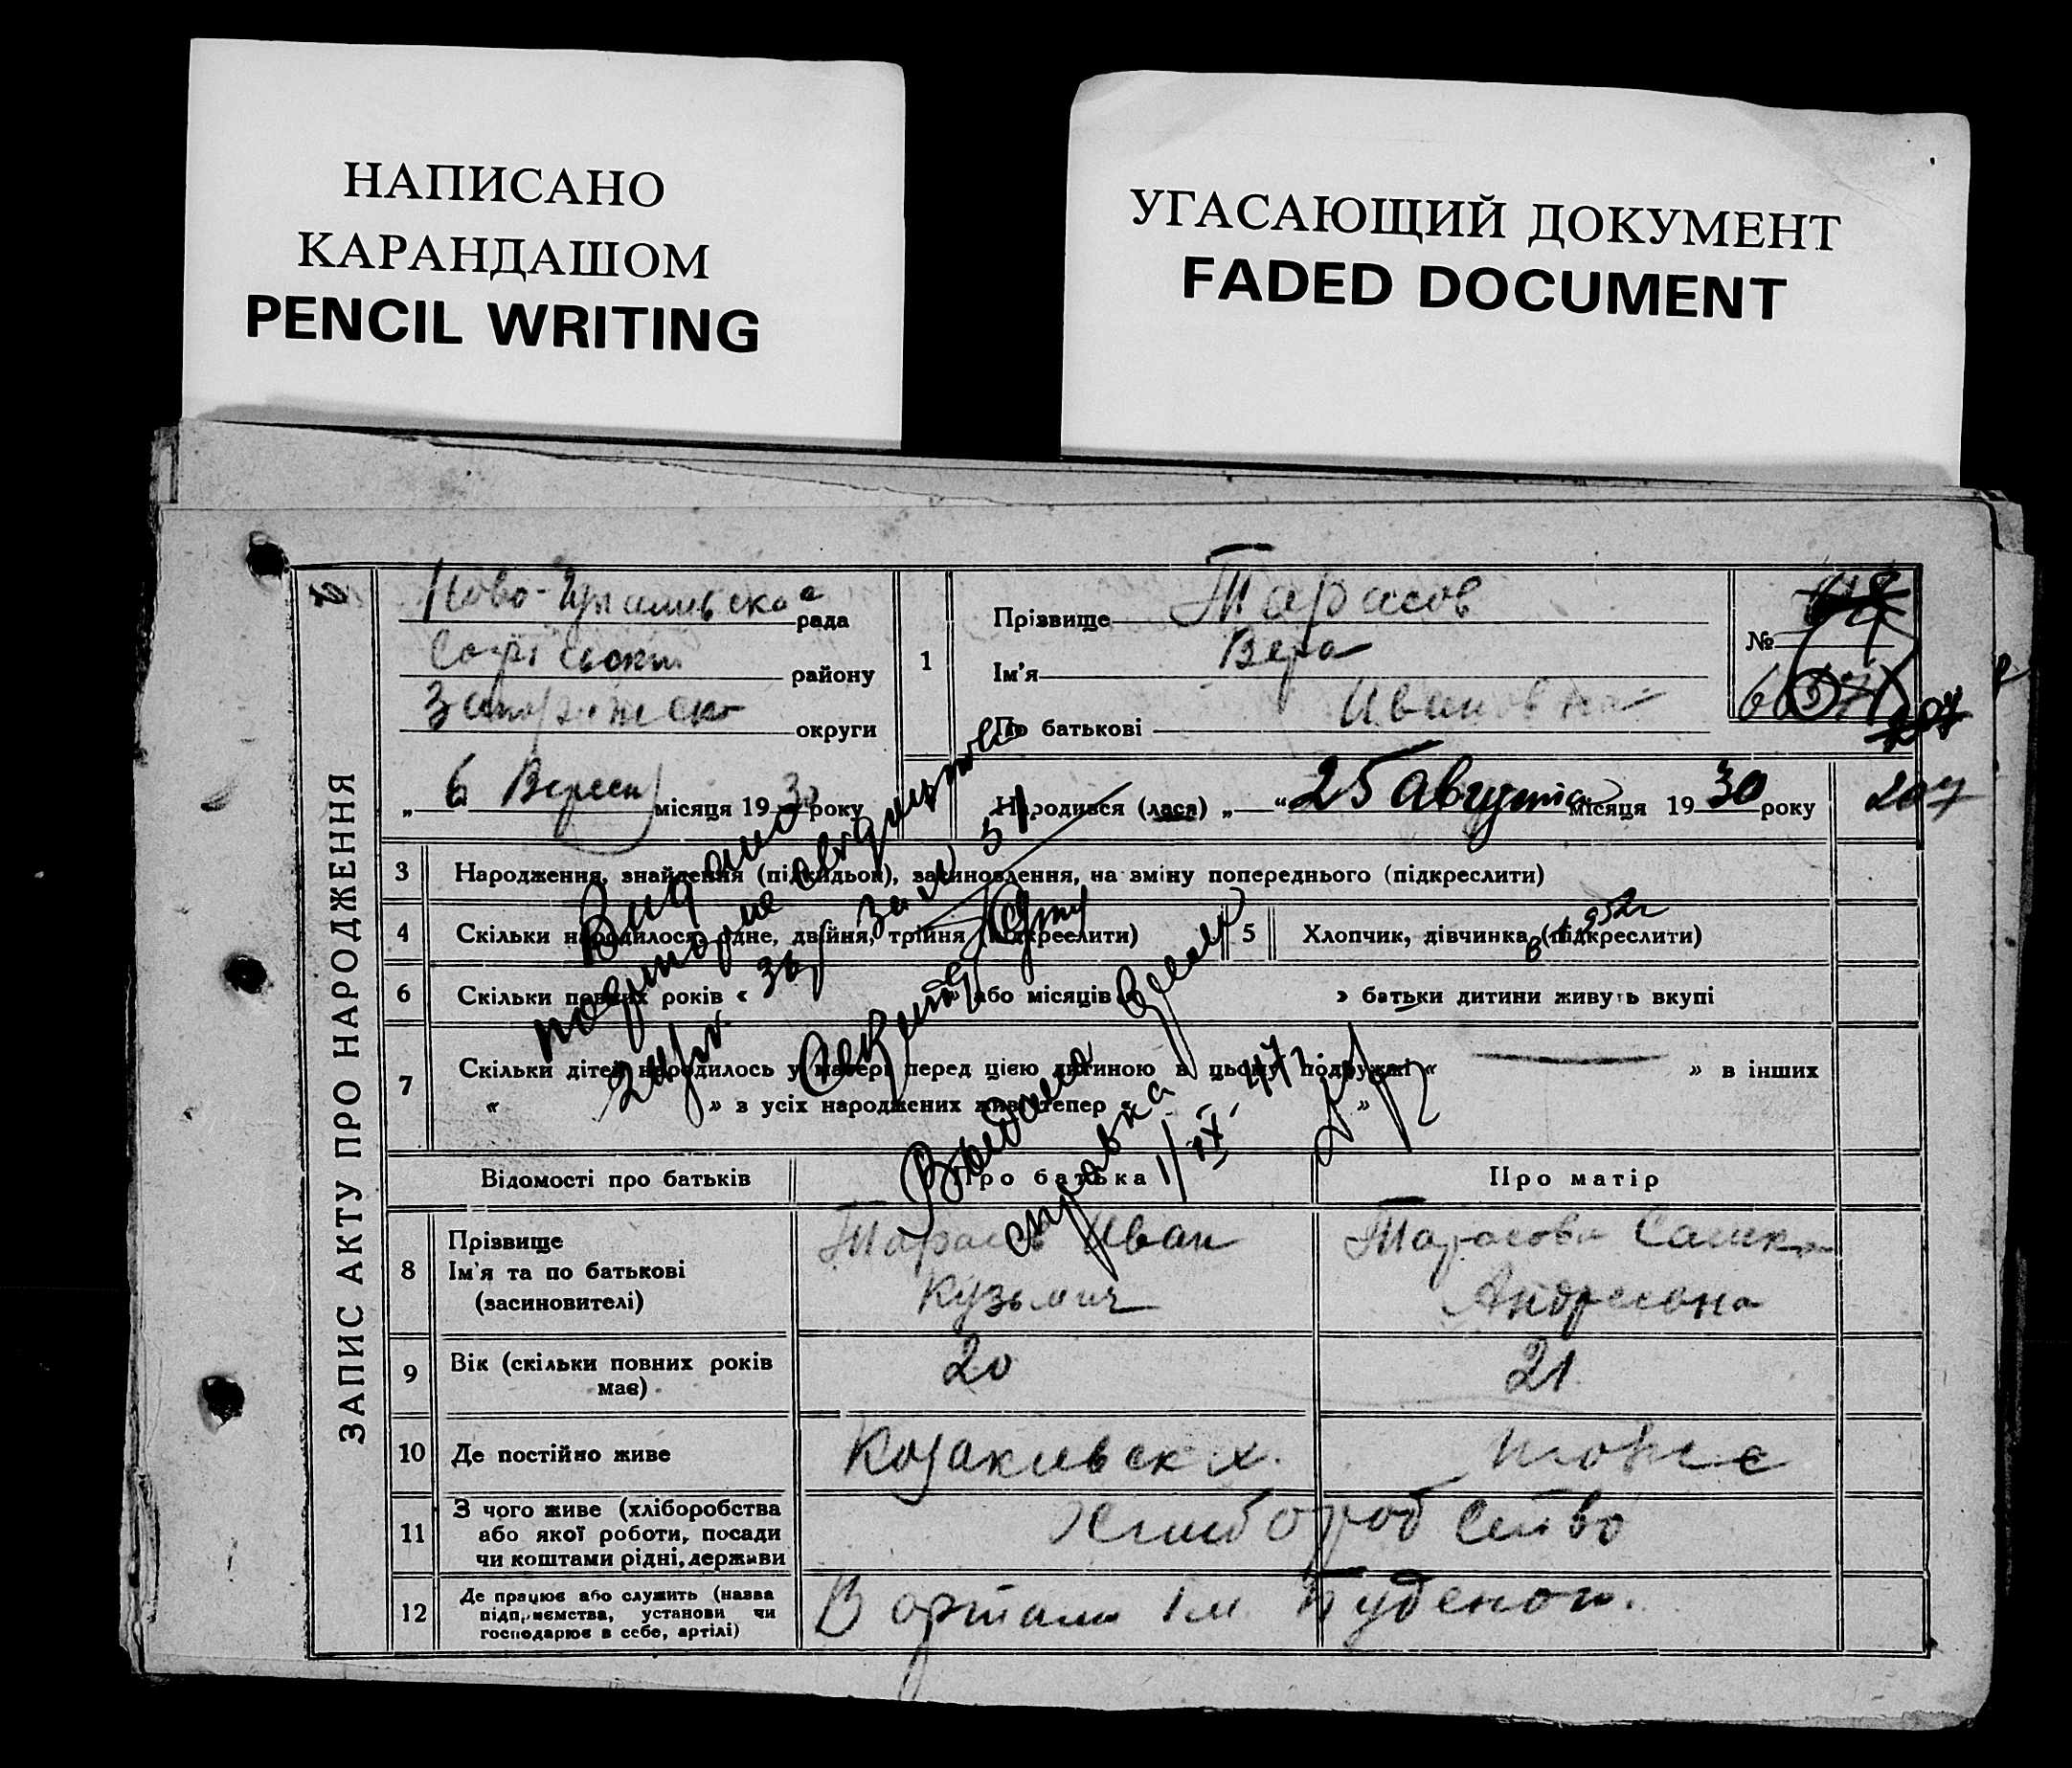 НАПИСАНО
КАРАНДАШОМ
PENCIL WRITING
УГАСАЮЩИЙ ДОКУМЕНТ
FADED DOCUMENT
ЗАПИС АКТУ ПРО НАРОДЖЕННЯ
рада
району
округи
„ 6 місяця 1930 року
1
Прізвище Тарасов
Ім'я Вера
По батькові Ивановна
№
207
Народився (лася) „ “ 25 августа місяця 1930 року
207
3 Народження, знайдення (підкидьок), засиновлення, на зміну попереднього (підкреслити)
4 Скільки народилося: одне, двійня, трійня (підкреслити)
5 Хлопчик, дівчинка (підкреслити)
6 Скільки повних років « » або місяців « » батьки дитини живуть вкупі
7 Скільки дітей народилось у матері перед цією дитиною в цьому подружжі « » в інших
« » з усіх народжених живі тепер « »
Видано
повторне
Секретар
Выдана
справка 1/IX 47 г.
Відомості про батьків
Про батька
Про матір
8 Прізвище
Ім'я та по батькові
(засиновителі)
Тарасов Иван
Кузьмич
Тарасова Сашка
Андреевна
9 Вік (скільки повних років
має)
20
21
10 Де постійно живе
х.
11 З чого живе (хліборобства
або якої роботи, посади
чи коштами рідні, держави
Хлиборобство
12 Де працює або служить (назва
підприємства, установи чи
господарює в себе, артілі)
В артели ім